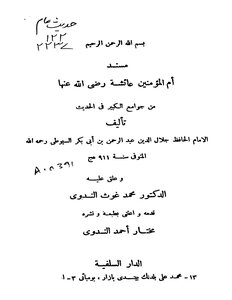 حديث عام
١٢٢
٢٢٣٧
بسم الله الرحمن الرحيم
مسند
أم المؤمنين عائشة رضى الله عنها
من جوامع الكبير فى الحديث
تأليف
الامام الحافظ جلال الدين عبد الرحمن بن أبى بكر السيوطى رحمه الله
المتوفى سنة ٩١١ هج
A٠٥٣٩١
و علق عليه
الدكتور محمد غوث الندوى
قدمه و اعتنى بطبعه و نشره
مختار أحمد الندوى
الدار السلفية
١٣- محمد على بلدنك بهندى بازار، بومبائى ٣-١